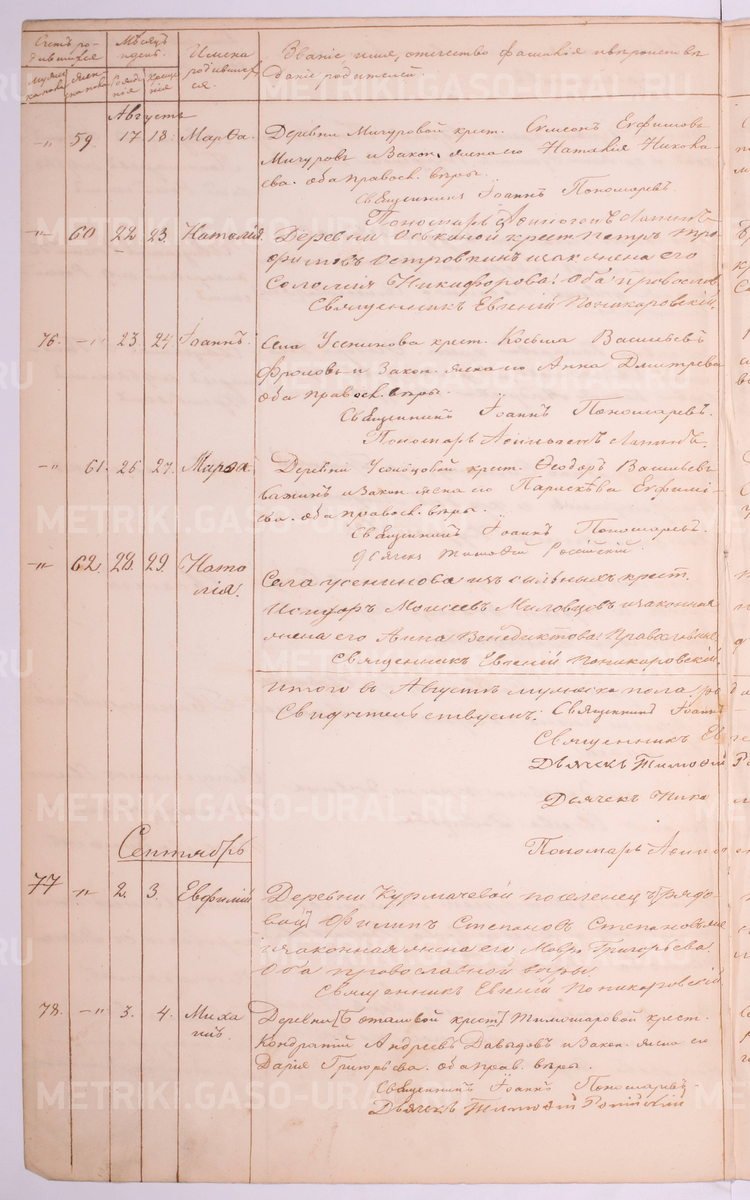 Счетъ ро-
дившихся
Мѣсяцъ
и день.
Имена
родивших
ся.
Званіе, имя, отечество, фамилія и вѣроисповѣ
даніе родителей.
Мужес
ка пола
женс
ка пола
Рожде
нія
Креще
нія
Августъ
-„ 59 17 18. Марѳа.
Деревни Мичуровой крест. Симеонъ Евфимовъ
Мичуровъ и закон. жена его Наталія Никола-
ева. оба правосл. вѣры.
Священникъ Іоаннъ Пономаревъ.
Пономарь Аѳиногенъ Лапинъ
-„ 60 22 23. Наталія.
Деревни крест Петръ Тро
фимовъ Островкинъ и зак жена его
Соломія Никифорова: Оба Православ.
Священникъ Евгеній Поникаровскій.
76. -„ 23 24 Іоаннъ.
Села Усенинова крест. Косьма Васильевъ
Фроловъ и закон. жена его Анна Дмитріева
оба правосл. вѣры.
Священникъ Іоаннъ Пономаревъ.
Пономарь Аѳиногенъ Лапинъ.
-„ 61. 26 27. Марѳа.
Деревни крест. Ѳеодоръ Васильевъ
Важинъ и закон. жена его Параскѣва Евфимі-
ева. оба правосл. вѣры.
Священникъ Іоаннъ Пономаревъ.
Дьячекъ Тимоѳей
-„ 62. 28. 29. Ната
лія.
Села Усенинова изъ сыльныхъ крест.
Исидоръ Моисеевъ Миловцовъ и законная
жена его Анна Венедиктова: Православные
Священникъ Евгеній Поникаровскій.
Итого въ Августѣ мужеска пола
Свидѣтельствуемъ: Священникъ Іоаннъ
Священникъ Ев
Дьячекъ Тимоѳей
Дьячекъ Ника
Пономарь Аѳино
Сентябрь
77 „ 2. 3. Евфимій
Деревни Курмачевой поселенецъ [рядо-
вой] Филипъ Степановъ Степановъ
и законная жена его Мавра Григорьева.
Оба православной вѣры.
Священникъ Евгеній Поникаровскій
78. -„ 3. 4. Миха
илъ.
Деревни [Боталовой крест] Тимошаровой крест.
Кондратій Андреевъ Давыдовъ и закон. жена его
Дарія Григорьева. оба прав. вѣры.
Священникъ Іоаннъ Пономаревъ
Дьячекъ Тимоѳей
METRIKI.GASO-URAL.RU